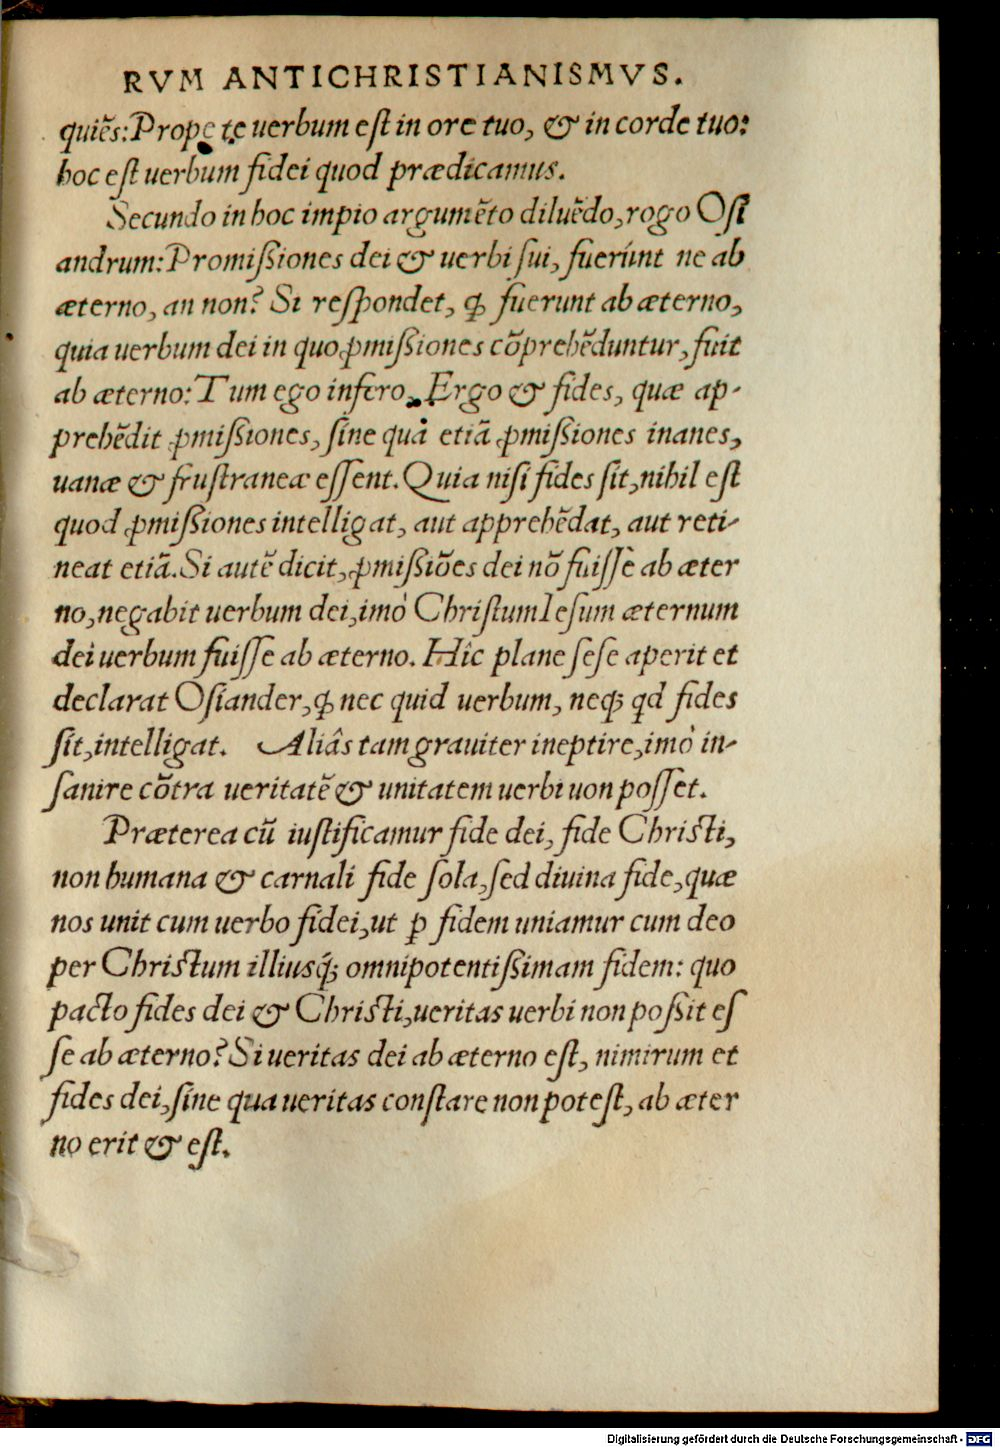 RVM ANTICHRISTIANISMVS.
quiẽs: Prope te uerbum est in ore tuo, & in corde tuo:
hoc est uerbum fidei quod prædicamus.
Secundo in hoc impio argumẽto diluẽdo, rogo Osi
andrum: Promißiones dei & uerbi sui, fuerúnt ne ab
æterno, an non? Si respondet, ꝙ fuerunt ab æterno,
quia uerbum dei in quo ꝓmißiones cõprehẽduntur, fuit
ab æterno: Tum ego infero. Ergo & fides, quæ ap-
prehẽdit ꝓmißiones, sine qua etiã ꝓmißiones inanes,
uanæ & frustraneæ essent. Quia nisi fides sit, nihil est
quod ꝓmißiones intelligat, aut apprehẽdat, aut reti-
neat etiã. Si autẽ dicit, ꝓmißiões dei nõ fuissè ab æter
no, negabit uerbum dei, imò Christum Iesum æternum
dei uerbum fuisse ab æterno. Hîc plane sese aperit et
declarat Osiander, ꝙ nec quid uerbum, neq; qd fides
sit, intelligat. Aliâs tam grauiter ineptire, imò in-
sanire cõtra ueritatẽ & unitatem uerbi uon posset.
Præterea cũ iustificamur fide dei, fide Christi,
non humana & carnali fide sola, sed diuina fide, quæ
nos unit cum uerbo fidei, ut ꝑ fidem uniamur cum deo
per Christum illiusq́; omnipotentißimam fidem: quo
pacto fides dei & Christi, ueritas uerbi non poßit es
se ab æterno? Si ueritas dei ab æterno est, nimirum et
fides dei, sine qua ueritas constare non potest, ab æter
no erit & est.
Digitalisierung gefördert durch die Deutsche Forschungsgemeinschaft - DFG